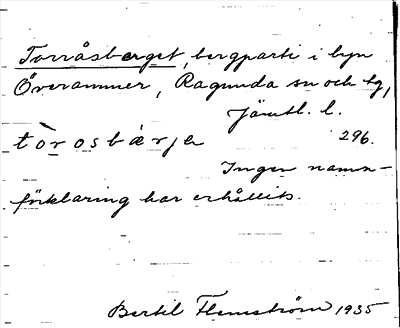 Torråsberget, bergparti i byn
Överammer, Ragunda sn och tg,
Jämtl. l.
tòrosbærje 296.
Ingen namn-
förklaring har erhållits.
Bertil Flemström 1935